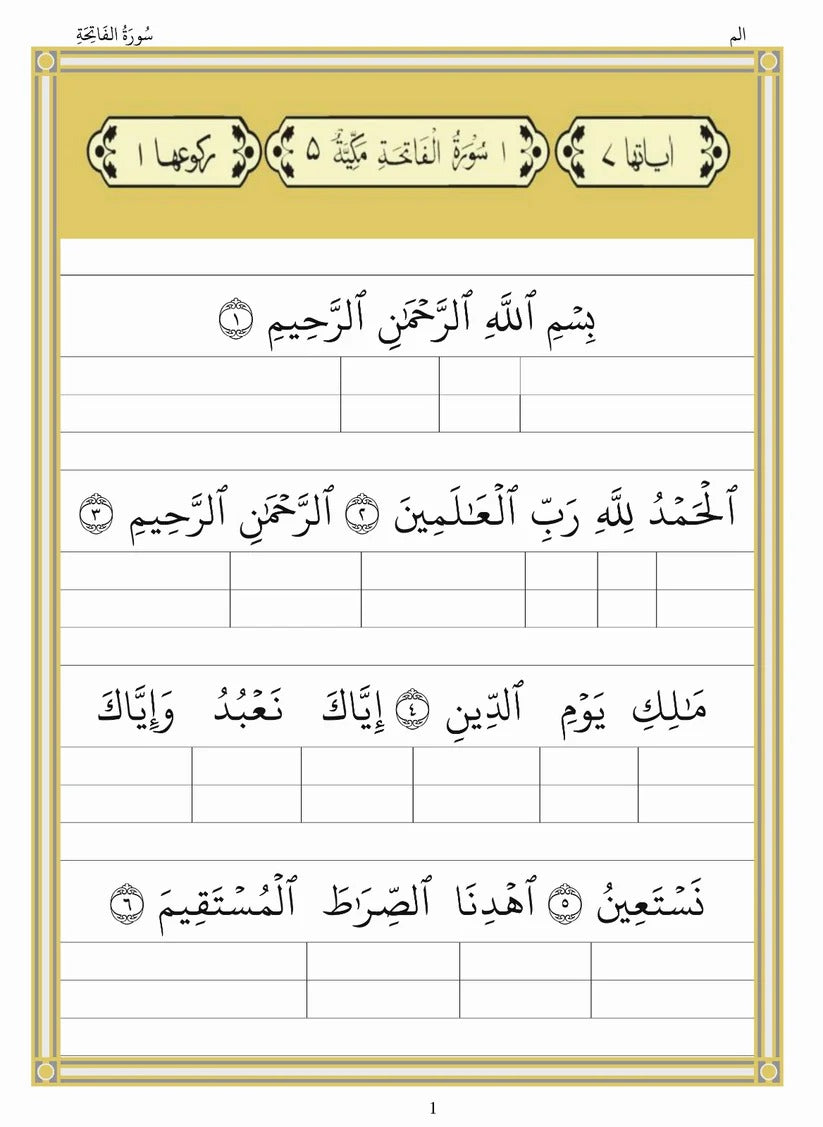 الم سُورَةُ الفَاتِحَةِ
اٰیاتها ۷ ۱ سُوْرَةُ الْفَاتِحَةِ مَكِّيَّةٌ ۵ رکوعها ۱
بِسۡمِ ٱللَّهِ ٱلرَّحۡمَٰنِ ٱلرَّحِيمِ ١
ٱلۡحَمۡدُ لِلَّهِ رَبِّ ٱلۡعَٰلَمِينَ ٢ ٱلرَّحۡمَٰنِ ٱلرَّحِيمِ ٣
مَٰلِكِ يَوۡمِ ٱلدِّينِ ٤ إِيَّاكَ نَعۡبُدُ وَإِيَّاكَ
نَسۡتَعِينُ ٥ ٱهۡدِنَا ٱلصِّرَٰطَ ٱلۡمُسۡتَقِيمَ ٦
1